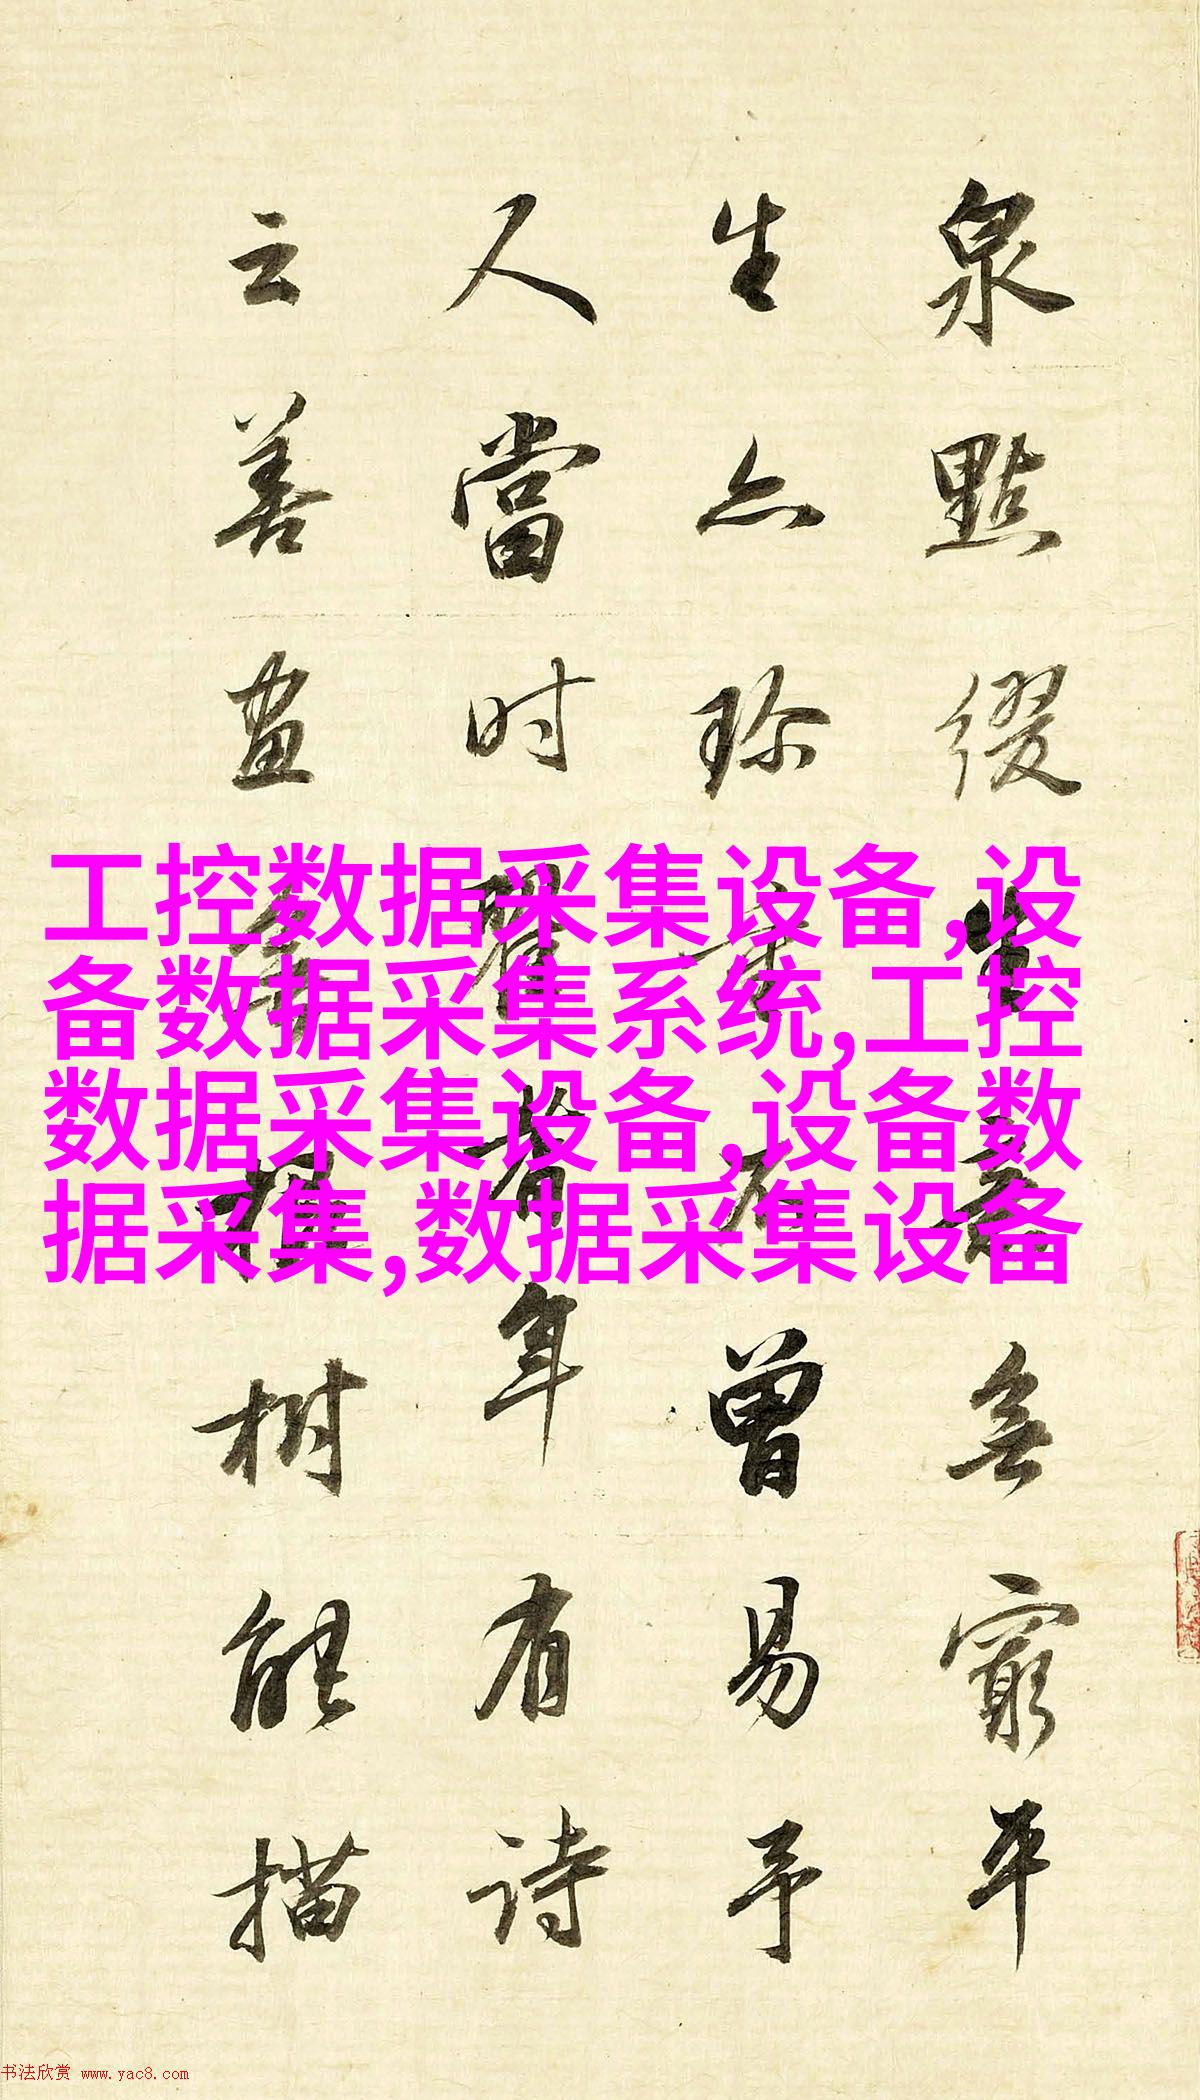 泉點綴生意無窮平
生亦珍重不曾易予
人當时瞿耆年有诗
云善畫無根树能描
工控数据采集设备,设
备数据采集系统,工控
数据采集设备,设备数
据采集,数据采集设备
书法欣赏 www.yac8.com